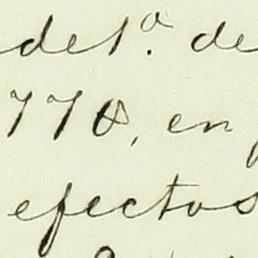 de 1.ª de
770, en
efectos